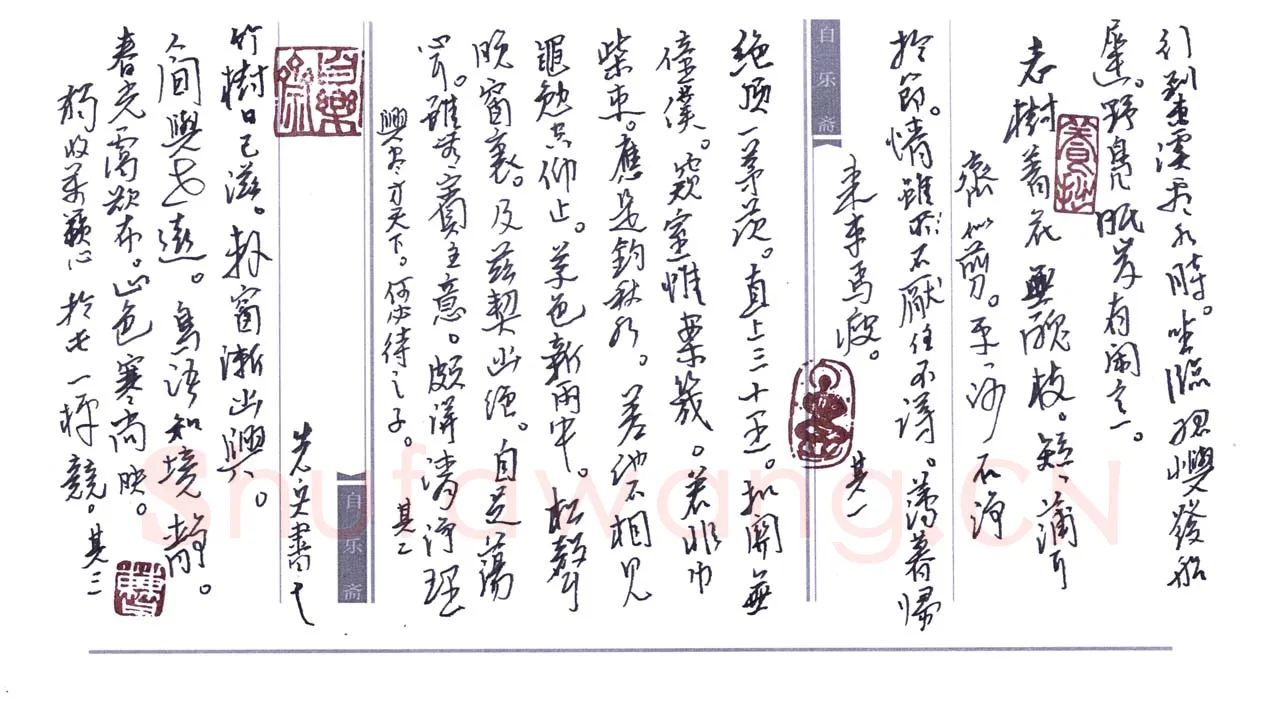 行到東溪看水時。坐臨孤嶼發船
遲。野鳧眠岸有闲意。
老樹著花無醜枝。短短蒲耳
齊似剪。平平沙石净
於篩。情雖不厭住不得。薄暮歸
来車馬疲。 其一
自乐斋
絶顶一茅茨。直上三十里。扣關無
僮僕。窥室惟案几。若非巾
柴車。應是釣秋水。差池不相見
黽勉空仰止。草色新雨中。松聲
晚窗裏。及兹契幽絕。自足蕩
心耳。雖無賓主意。頗得清净理
興尽方天下。何必待之子。 其二
自乐斋
竹樹日已滋。軒窗漸幽興。
人间與世遠。鳥语知境静。
春光靄欲布。山色寒尚映。
獨收萬籁心於此一枰競。其三
自樂齋
養拙
Shufawang.CN